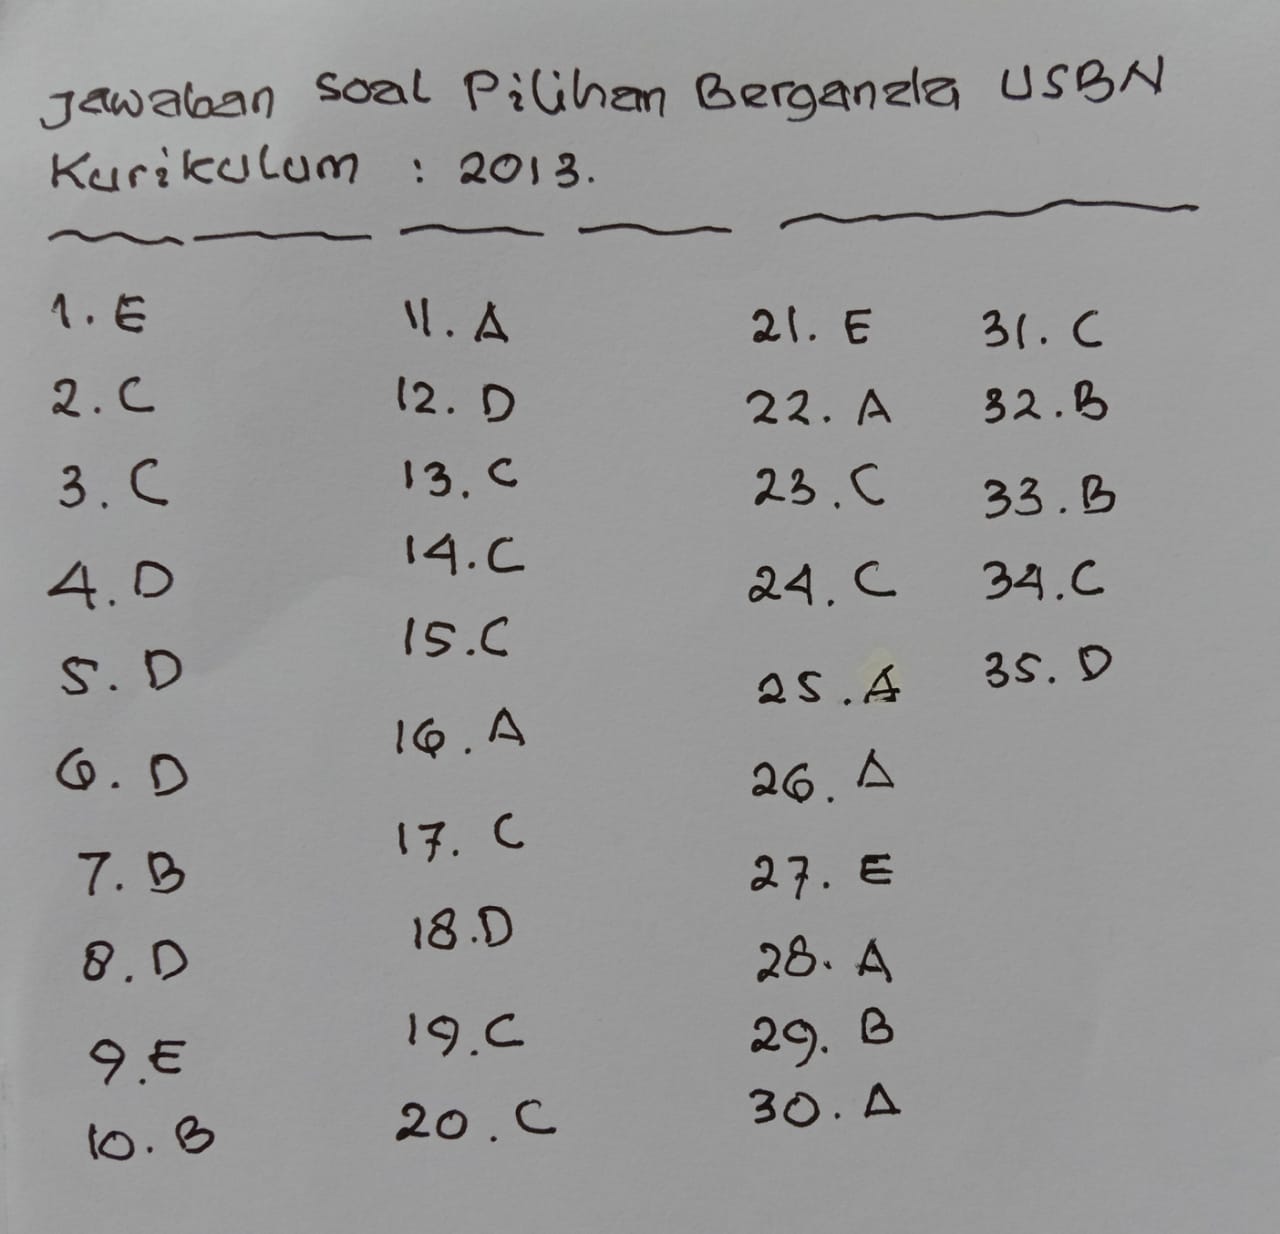 Jawaban Soal Pilihan Berganda USBN
Kurikulum : 2013.
1. E
2. C
3. C
4. D
5. D
6. D
7. B
8. D
9. E
10. B
11. A
12. D
13. C
14. C
15. C
16. A
17. C
18. D
19. C
20. C
21. E
22. A
23. C
24. C
25. A
26. A
27. E
28. A
29. B
30. A
31. C
32. B
33. B
34. C
35. D